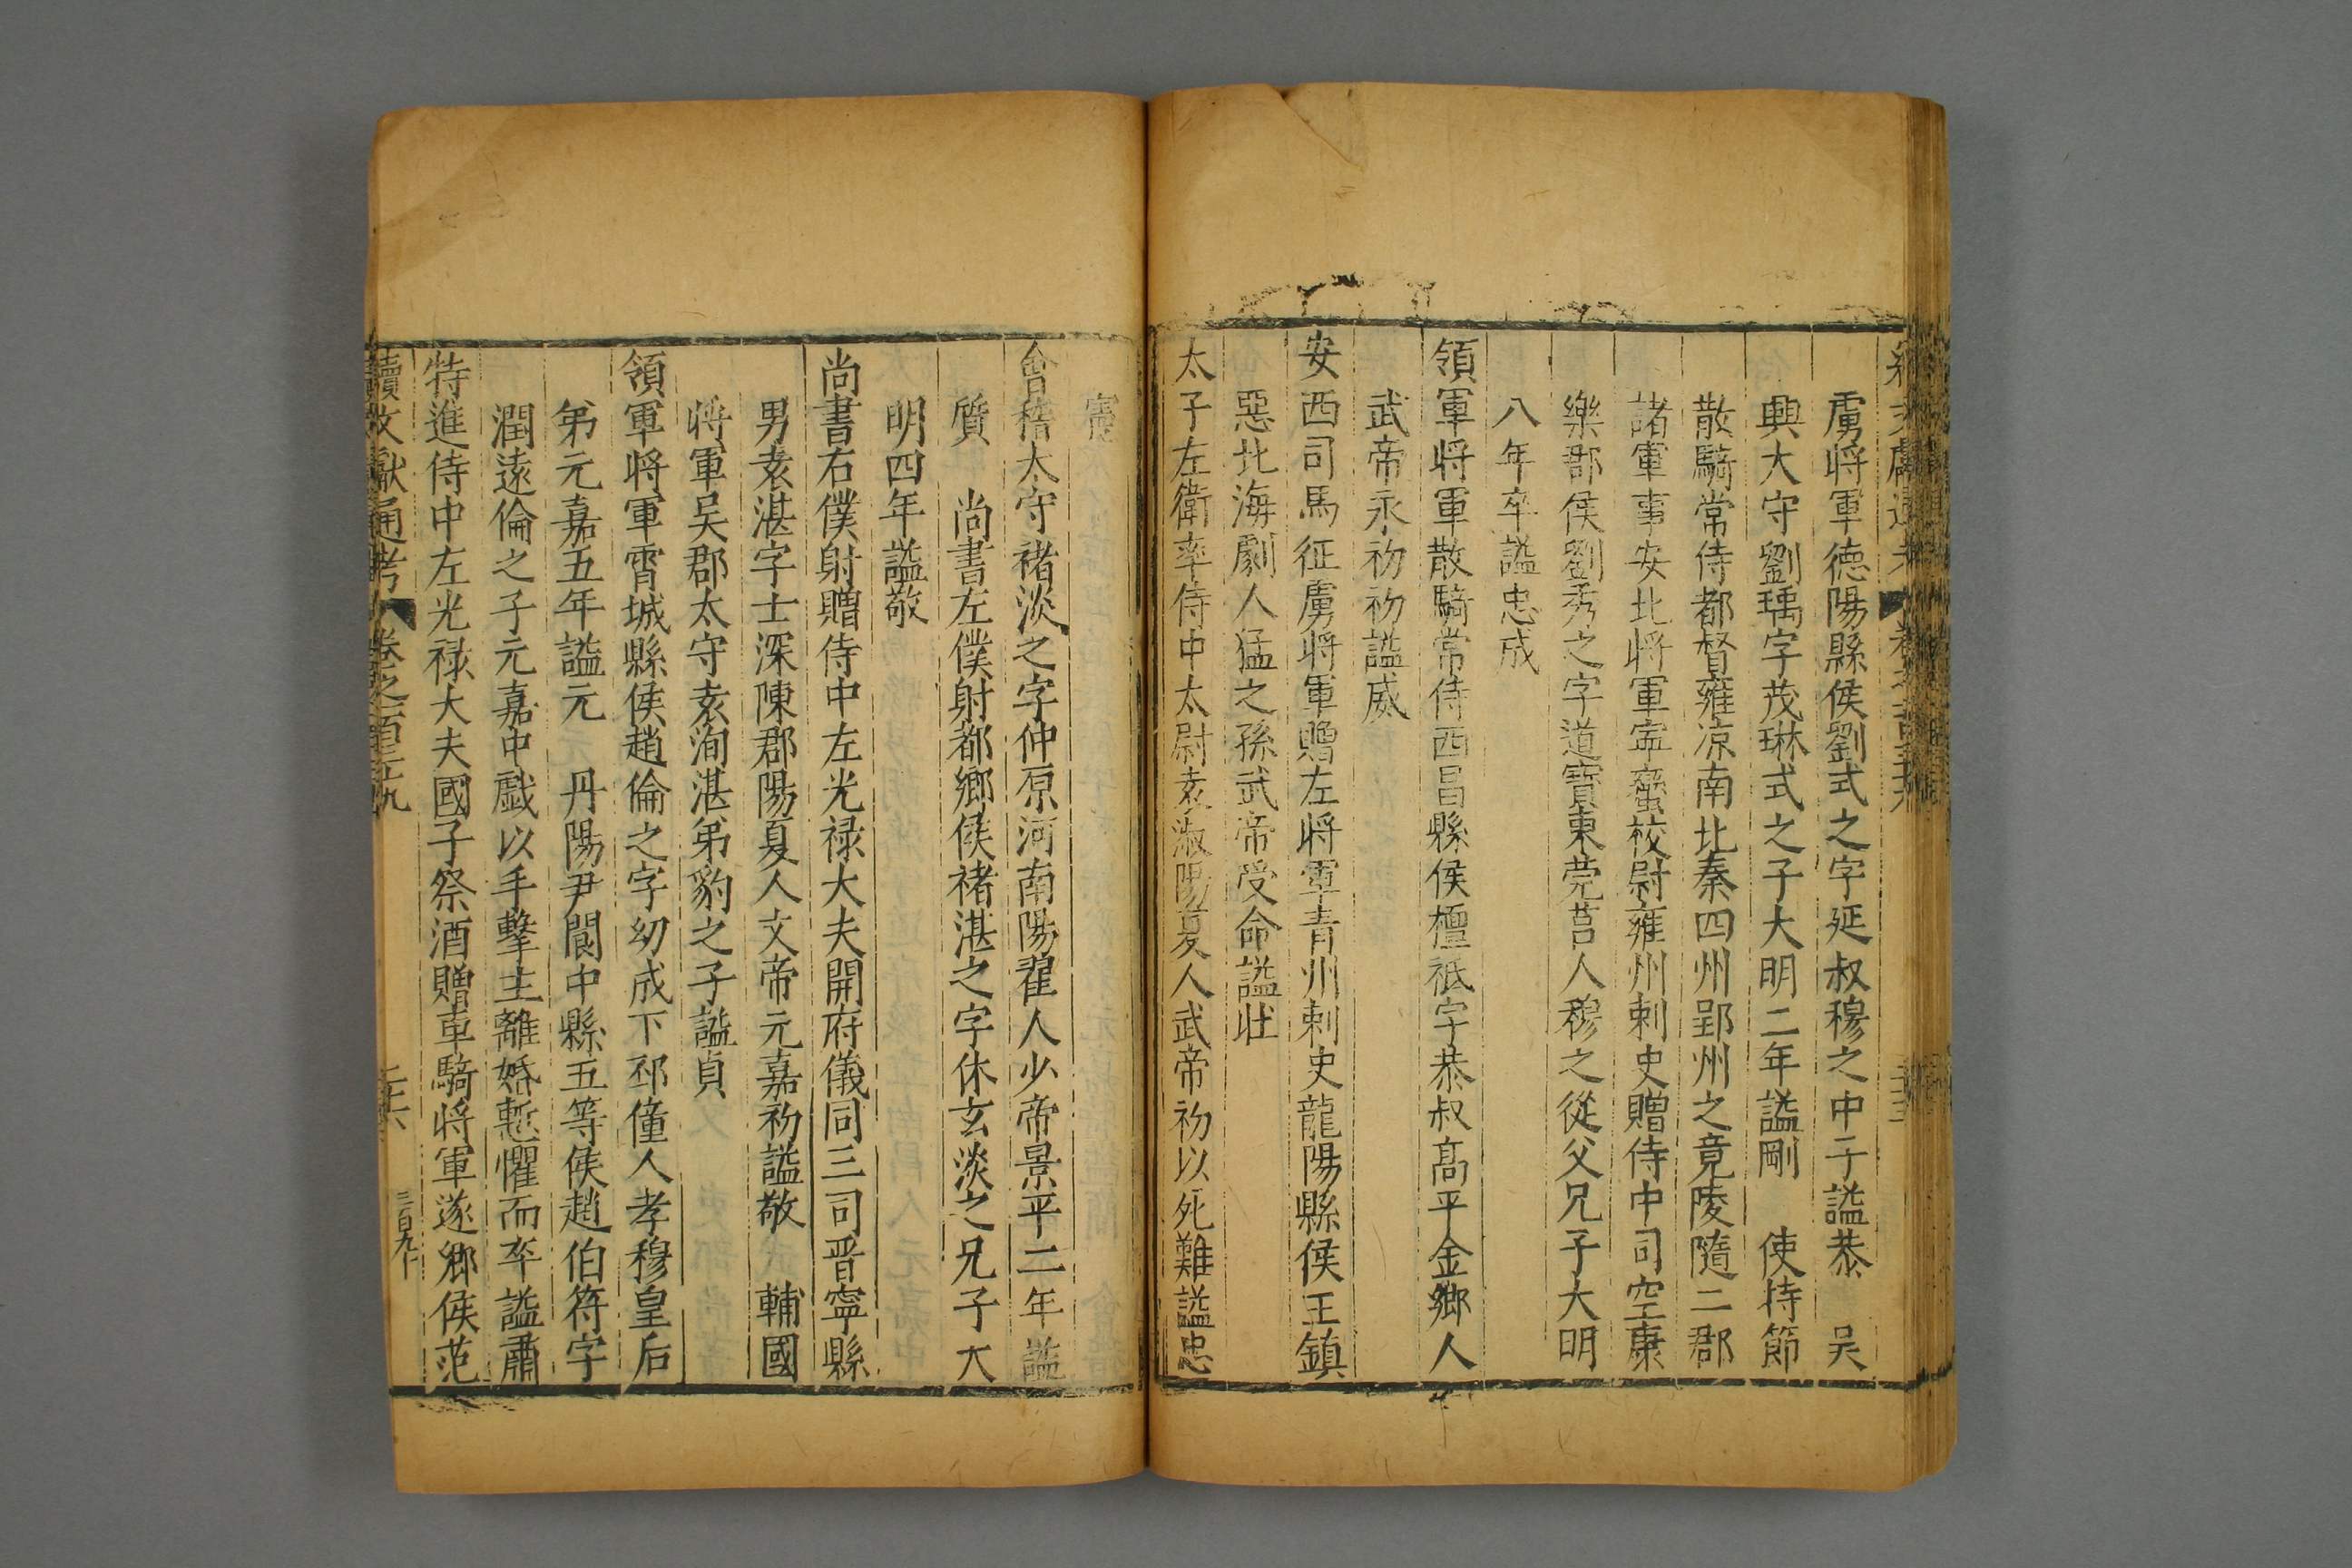 虜將軍德陽縣侯劉式之字延叔穆之中子謚恭　吳
興大守劉瑀字茂琳式之子大明二年謚剛　使持節
散騎常侍都督雍凉南北秦四州郢州之竟陵隨二郡
諸軍事安北將軍寧蠻校尉雍州刺史贈侍中司空康
樂郡侯劉秀之字道寶東莞莒人穆之從父兄子大明
八年卒謚忠成
領軍將軍散騎常侍西昌縣侯檀祗字恭叔高平金鄉人
武帝永初初謚威
安西司馬征虜將軍贈左將軍青州刺史龍陽縣侯王鎮
惡北海劇人猛之孫武帝受命謚壯
太子左衛率侍中太尉袁淑陽夏人武帝初以死難謚忠
憲
會稽太守褚淡之字仲原河南陽翟人少帝景平二年謚
質　尚書左僕射都鄉侯褚湛之字休玄淡之兄子大
明四年謚敬
尚書右僕射贈侍中左光祿大夫開府儀同三司晉寧縣
男袁湛字士深陳郡陽夏人文帝元嘉初謚敬　輔國
將軍吳郡太守袁洵湛弟豹之子謚貞
領軍將軍霄城縣侯趙倫之字幼成下邳僮人孝穆皇后
弟元嘉五年謚元　丹陽尹閬中縣五等侯趙伯符字
潤遠倫之子元嘉中戲以手擊主離婚慙懼而卒謚肅
特進侍中左光祿大夫國子祭酒贈車騎將軍遂鄉侯范
續文獻通考　卷之一百三十九